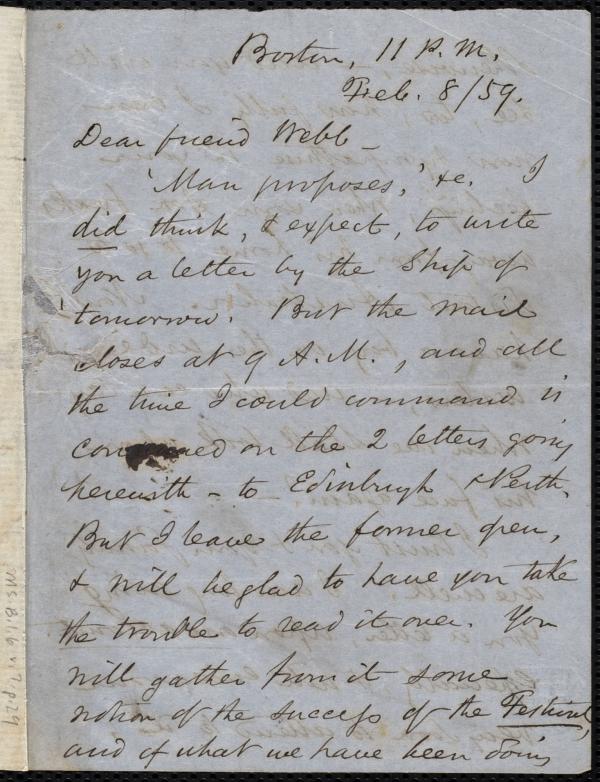 Boston, 11 P.M.
Feb. 8/59.
Dear friend Webb_
'Man proposes,' &c. I
did think, & expect, to write
you a letter by the Ship of
tomorrow. But the mail
closes at 9 A.M., and all
the time I could command is
consumed on the 2 letters going
herewith - to Edinburgh & Perth.
But I leave the former open,
& will be glad to have you take
the trouble to read it over. You
will gather from it some
notion of the success of the Festival,
and of what we have been doing
Ms.B.1.6 v.7 p.29